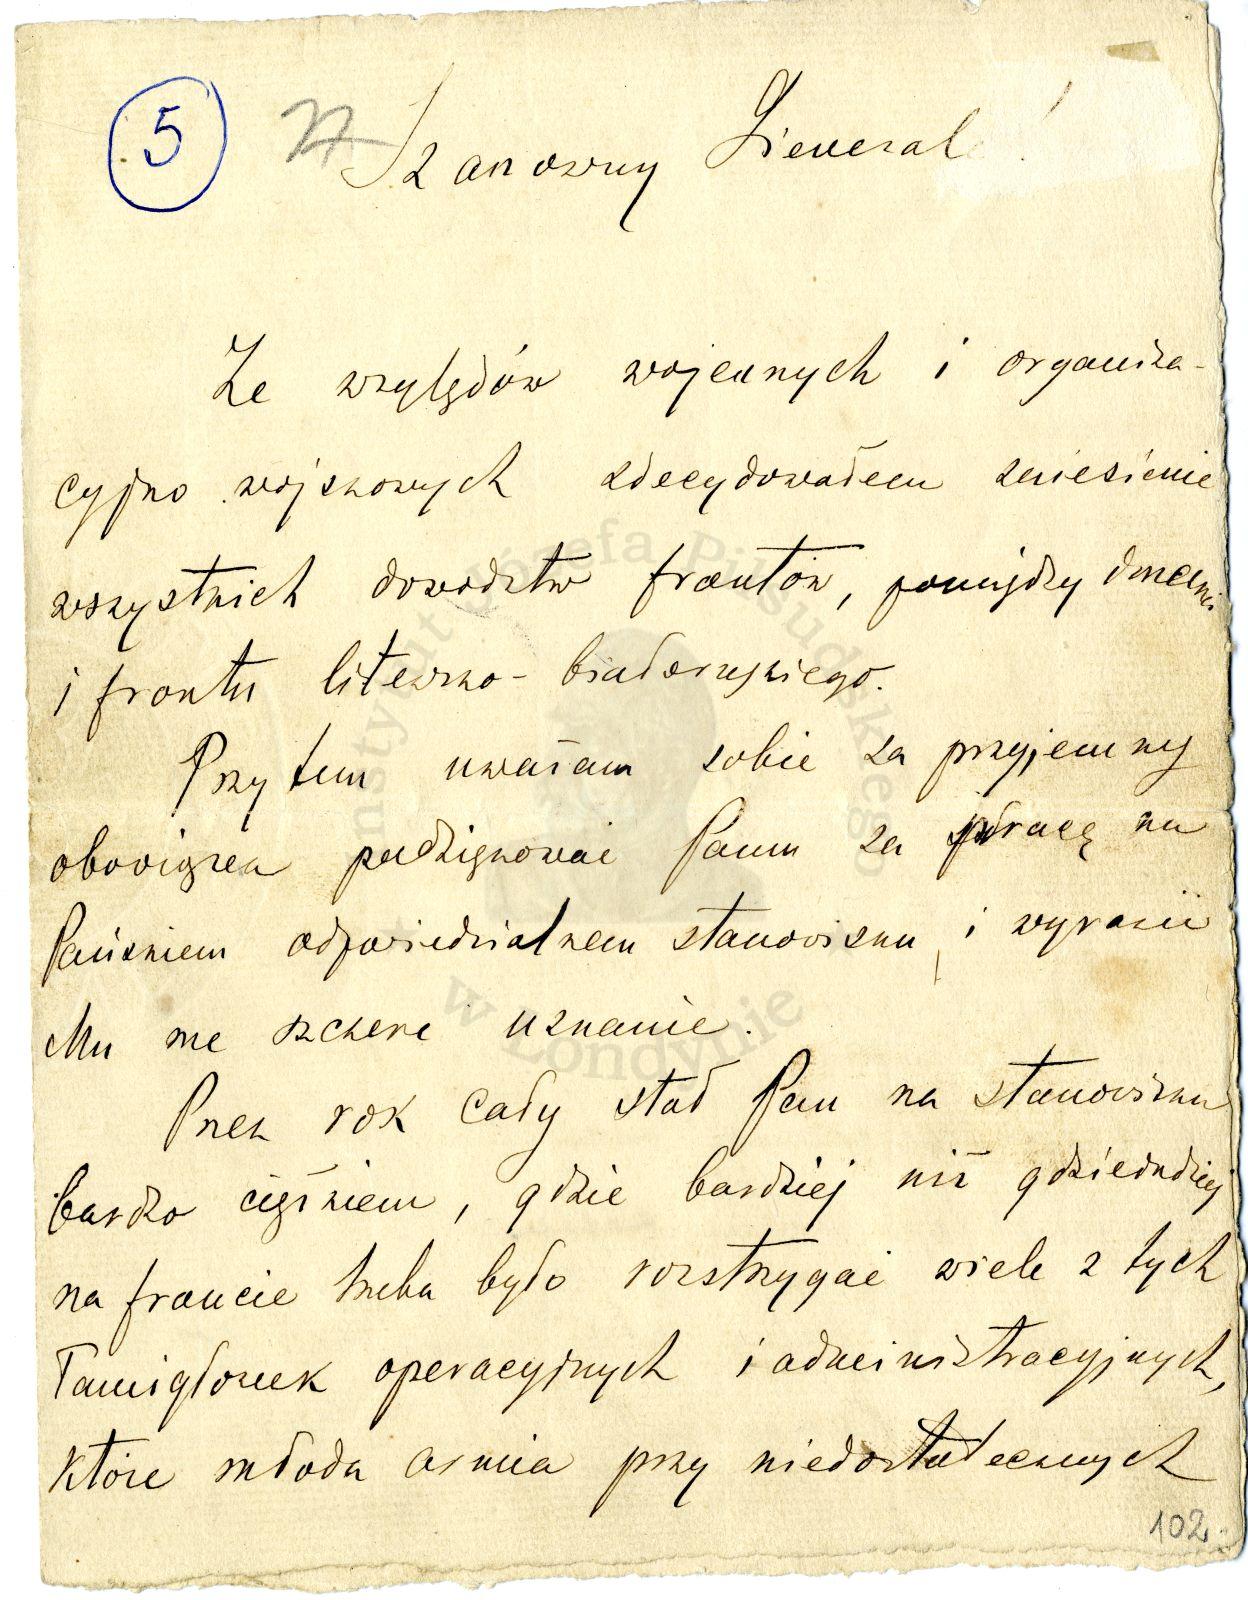 5
Szanowny Generale!
Ze względów wojennych i organiza-
cyjno wojskowych zdecydowałem zniesienie
wszystkich dowództw frontów, pomiędzy innemi
i frontu litewsko-białoruskiego.
Przytem uważam sobie za przyjemny
obowiązek podziękować Panu za pracę na
Pańskiem odpowiedzialnem stanowisku, i wyrazić
Mu me szczere uznanie.
Przez rok cały stał Pan na stanowisku
bardzo ciężkiem, gdzie bardziej niż gdzieindziej
na froncie trzeba było rozstrzygać wiele z tych
łamigłówek operacyjnych i administracyjnych,
które młoda armia przy niedostatecznych
102
Instytut Józefa Piłsudskiego
w Londynie